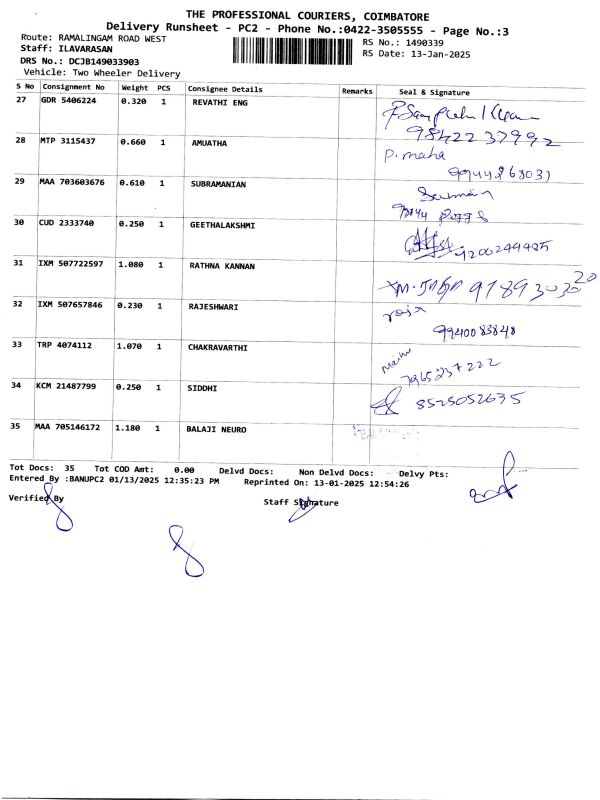 THE PROFESSIONAL COURIERS, COIMBATORE
Delivery Runsheet - PC2 - Phone No.:0422-3505555 - Page No.:3
Route: RAMALINGAM ROAD WEST
RS No.: 1490339
Staff: ILAVARASAN
RS Date: 13-Jan-2025
DRS No.: DCJB149033903
Vehicle: Two Wheeler Delivery
S No Consignment No Weight PCS Consignee Details Remarks Seal & Signature
27 GDR 5406224 0.320 1 REVATHI ENG
9842237992
28 MTP 3115437 0.660 1 AMUATHA P. maha
29 MAA 703603676 0.610 1 SUBRAMANIAN
30 CUD 2333740 0.250 1 GEETHALAKSHMI
9200244485
31 IXM 507722597 1.080 1 RATHNA KANNAN
32 IXM 507657846 0.230 1 RAJESHWARI
9940083848
33 TRP 4074112 1.070 1 CHAKRAVARTHI
34 KCM 21487799 0.250 1 SIDDHI 8525052635
35 MAA 705146172 1.180 1 BALAJI NEURO
Tot Docs: 35 Tot COD Amt: 0.00 Delvd Docs: Non Delvd Docs: Delvy Pts:
Entered By :BANUPC2 01/13/2025 12:35:23 PM Reprinted On: 13-01-2025 12:54:26
Verified By Staff Signature